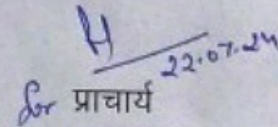 22.07.24
for प्राचार्य